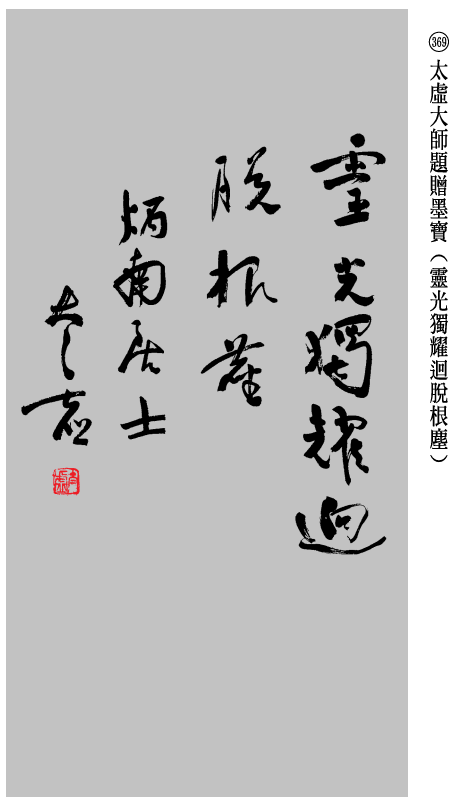 369 太虛大師題贈墨寶（靈光獨耀迴脫根塵）
靈光獨耀逈
脫根塵
炳南居士
太虛